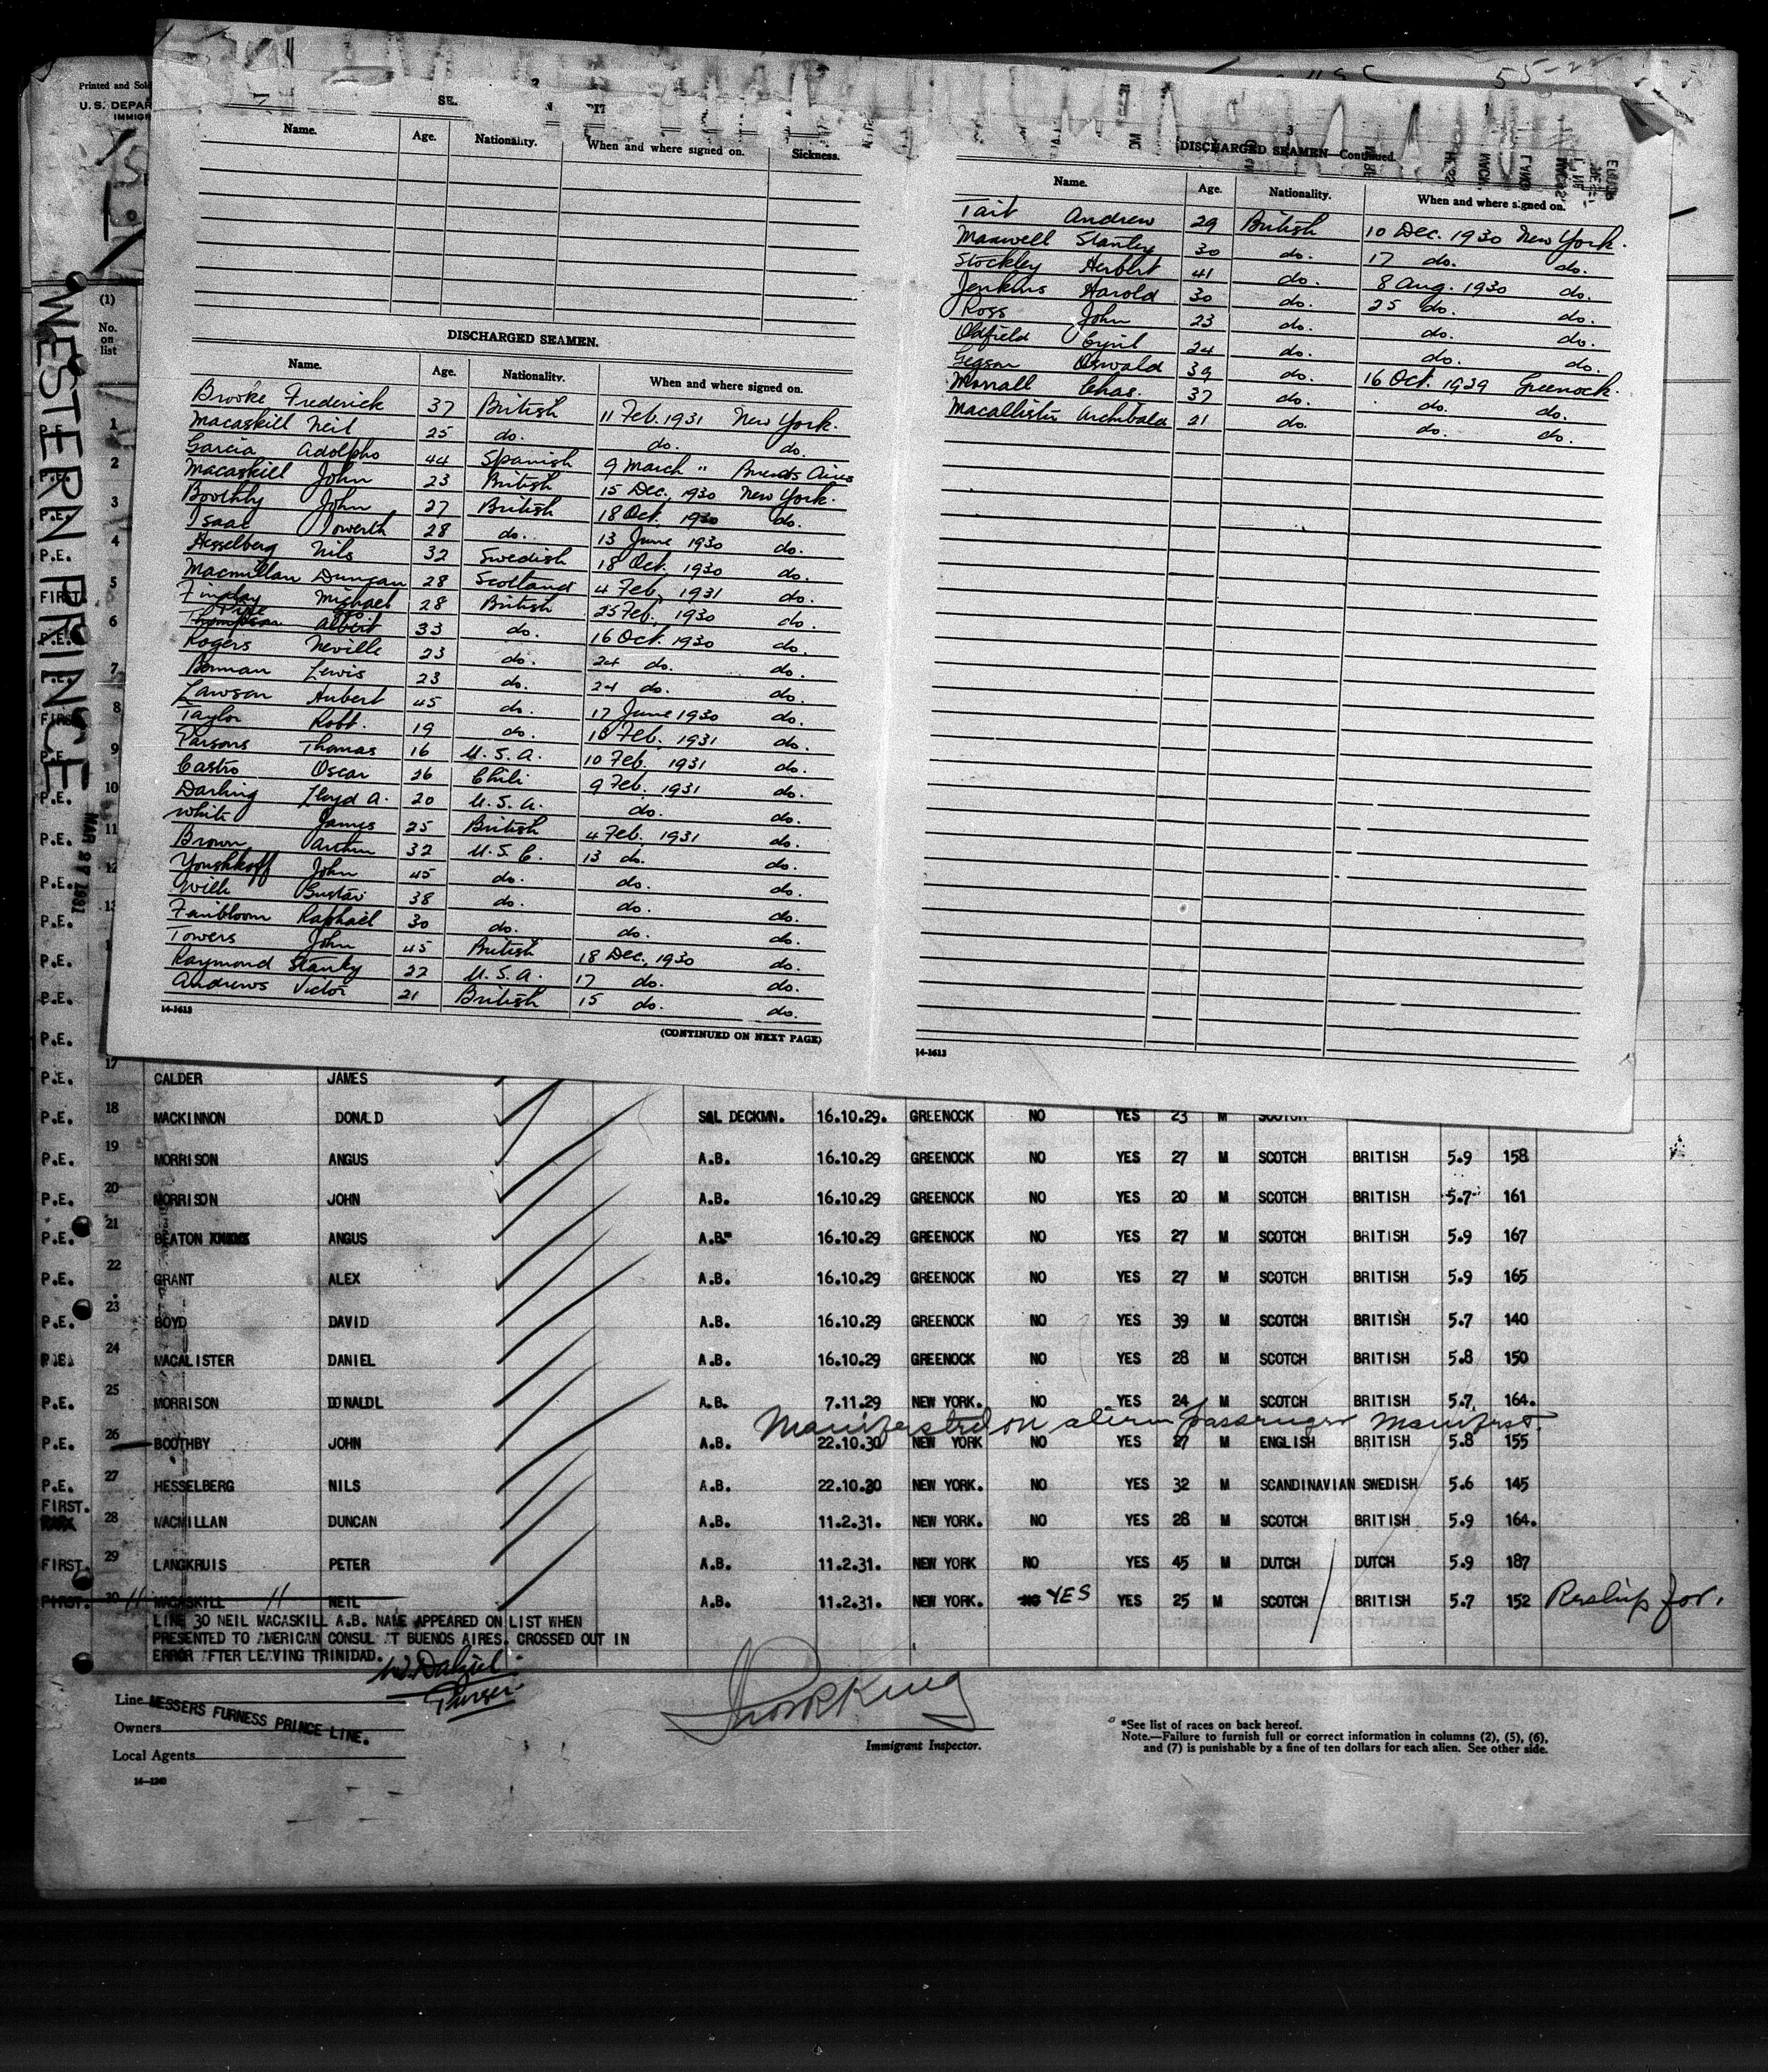 Printed and Sold
U.S. DEPAR
IMMIGR
WESTERN PRINCE
MAR 27 1931
(1)
No.
on
list
Name. Age. Nationality. When and where signed on. Sickness.
DISCHARGED SEAMEN.
Name. Age. Nationality. When and where signed on.
Brooke Frederick 37 British 11 Feb. 1931 New York.
Macaskill Neil 25 do. do. do.
Garcia Adolpho 44 Spanish 9 March " Buenos Aires
Macaskill John 23 British 15 Dec, 1930 New York.
Boothby John 27 British 18 Oct. 1930 do.
Isaac Iowerth 28 do. 13 June 1930 do.
Hesselberg Nils 32 Swedish 18 Oct, 1930 do.
Macmillan Duncan 28 Scotland 4 Feb, 1931 do.
Finlay Michael 28 British 25 Feb, 1930 do.
Thompson Albert 33 do. 16 Oct. 1930 do.
Rogers Neville 23 do. 24 do. do.
Lewis 23 do. 24 do. do.
Lawson Aubert 45 do. 17 June 1930 do.
Taylor Robt. 19 do. 10 Feb. 1931 do.
Parsons Thomas 16 U.S.A. 10 Feb. 1931 do.
Castro Oscar 26 Chili 9 Feb. 1931 do.
Darling Lloyd A. 20 U.S.A. do. do.
White James 25 British 4 Feb. 1931 do.
Brown 32 U.S.C. 13 do. do.
Youshkoff John 45 do. do. do.
Wilk Gustav 38 do. do. do.
Fainbloom Raphael 30 do. do. do.
Towers John 45 British 18 Dec, 1930 do.
Raymond Stanley 22 U.S.A. 17 do. do.
Andrews Victor 21 British 15 do. do.
14-1613
(CONTINUED ON NEXT PAGE)
3
DISCHARGED SEAMEN—Continued.
Name. Age. Nationality. When and where signed on.
Tait Andrew 29 British 10 Dec. 1930 New York.
Maxwell Stanley 30 do. 17 do. do.
Stockley Herbert 41 do. 8 Aug. 1930 do.
Jenkins Harold 30 do. 25 do. do.
Ross John 23 do. do. do.
Oldfield Cyril 24 do. do. do.
Oswald 39 do. 16 Oct. 1929 Greenock.
Morrall Chas. 37 do. do. do.
Macallister Archibald 21 do. do. do.
14-1613
P.E. 17 CALDER JAMES
P.E. 18 MACKINNON DONALD SAL DECKMN. 16.10.29. GREENOCK NO YES 23 M SCOTCH
P.E. 19 MORRISON ANGUS A.B. 16.10.29 GREENOCK NO YES 27 M SCOTCH BRITISH 5.9 158
P.E. 20 MORRISON JOHN A.B. 16.10.29 GREENOCK NO YES 20 M SCOTCH BRITISH 5.7 161
P.E. 21 BEATON ANGUS A.B. 16.10.29 GREENOCK NO YES 27 M SCOTCH BRITISH 5.9 167
P.E. 22 GRANT ALEX A.B. 16.10.29 GREENOCK NO YES 27 M SCOTCH BRITISH 5.9 165
P.E. 23 BOYD DAVID A.B. 16.10.29 GREENOCK NO YES 39 M SCOTCH BRITISH 5.7 140
P.E. 24 MACALISTER DANIEL A.B. 16.10.29 GREENOCK NO YES 28 M SCOTCH BRITISH 5.8 150
P.E. 25 MORRISON DONALDL A.B. 7.11.29 NEW YORK. NO YES 24 M SCOTCH BRITISH 5.7 164.
Manifested on alien passenger Manifest
P.E. 26 BOOTHBY JOHN A.B. 22.10.30 NEW YORK NO YES 27 M ENGLISH BRITISH 5.8 155
P.E. 27 HESSELBERG NILS A.B. 22.10.30 NEW YORK. NO YES 32 M SCANDINAVIAN SWEDISH 5.6 145
FIRST. 28 MACMILLAN DUNCAN A.B. 11.2.31. NEW YORK. NO YES 28 M SCOTCH BRITISH 5.9 164.
FIRST. 29 LANGKRUIS PETER A.B. 11.2.31. NEW YORK NO YES 45 M DUTCH DUTCH 5.9 187
FIRST. 30 MACASKILL NEIL A.B. 11.2.31. NEW YORK. NO YES YES 25 M SCOTCH BRITISH 5.7 152 Reship for.
LINE 30 NEIL MACASKILL A.B. NAME APPEARED ON LIST WHEN
PRESENTED TO AMERICAN CONSUL AT BUENOS AIRES. CROSSED OUT IN
ERROR AFTER LEAVING TRINIDAD.
W. Dalziel
Purser
Line MESSERS FURNESS PRINCE LINE.
Owners
Local Agents
14—1240
Immigrant Inspector.
*See list of races on back hereof.
Note.—Failure to furnish full or correct information in columns (2), (5), (6),
and (7) is punishable by a fine of ten dollars for each alien. See other side.